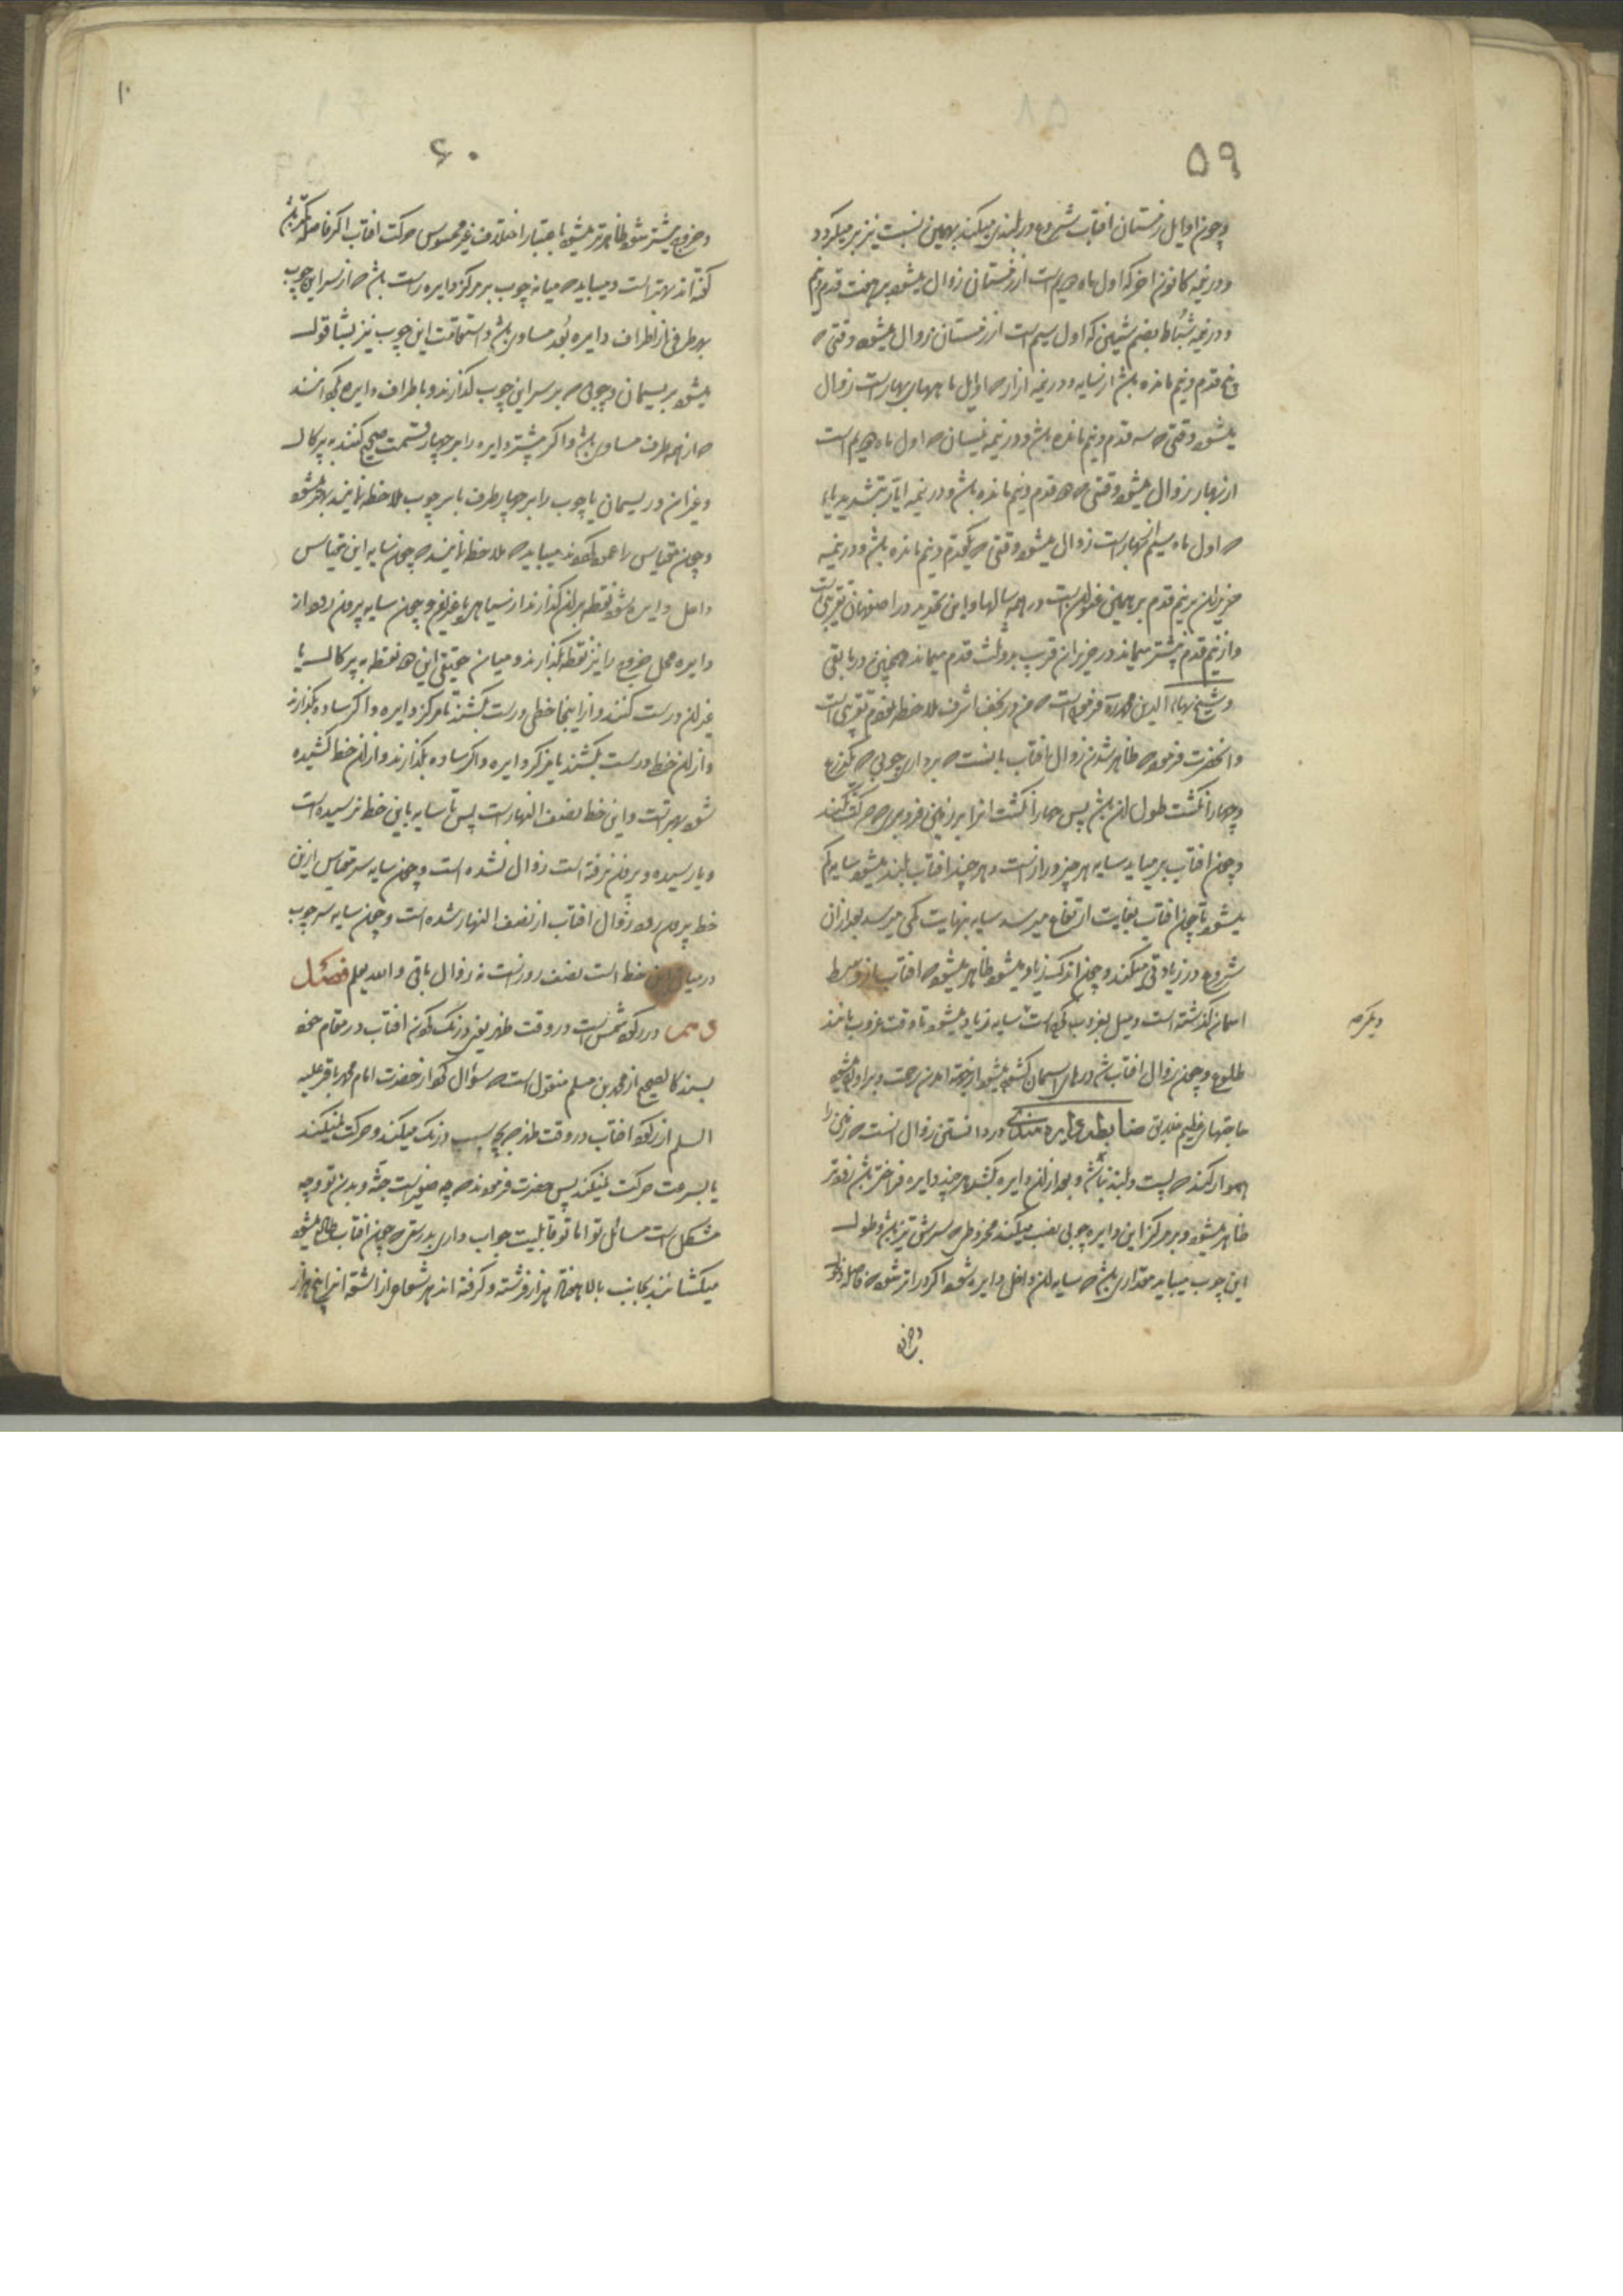 ۵۹
و چون اوایل زمستان افتاب شروع در بلندی میکند بهمین نسبت نیز بر میکردد
و در نیمه کانون اخر که اول ماه دویم است از زمستان زوال میشود بر هفت قدم و نیم
و در نیمه شباط بضم شین که اول سیم است از زمستان زوال میشود وقتی که
پنج قدم و نیم مانده باشد از سایه و در نیمه اذار که اوایل ماههای بهار است زوال
میشود وقتی که سه قدم و نیم مانده باشد و در نیمه نیسان که اول ماه دویم است
از بهار زوال میشود وقتی که دو قدم و نیم مانده باشد و در نیمه ایّار بتشدید یاء
که اول ماه سیم بهار است زوال میشود وقتی که یکقدم و نیم مانده باشد و در نیمه
حزیران بر نیم قدم بر همین عنوان است در همه سالها و این تحدید در اصفهان تقریبی است
و از نیم قدم بیشتر میماند در حزیران قریب بدو ثلث قدم میماند همچنین در باقی
و شیخ بهاء الدین محمد ره فرموده است که من در نجف اشرف ملاحظه نمودم تقریبی است
و انحضرت فرموده که ظاهر شدن زوال افتاب بانست که برداری چوبی که یکذرع
و چهار انکشت طول ان باشد پس چهار انکشت انرا بر زمین فرو بری که حرکت نکند
و چون افتاب بر میاید سایه هر چیز دراز است و هر چند افتاب بلند میشود سایه کم
میشود تا چون افتاب بغایت ارتفاع میرسد سایه بنهایت کمی میرسد بعد از ان
شروع در زیادتی میکند و چون اندکی زیاد میشود ظاهر میشود که افتاب از وسط
اسمان کذشته است و میل بغروب کرده است سایه زیاد میشود تا وقت غروب مانند
طلوع و چون زوال افتاب شد درهای اسمان کشوده میشود از جهة امدن رحمت و براورده میشود
حاجتهای عظیم خلایق ضابطه دایره هندی در دانستن زوال انست که زمین را
هموار کنند که پست و بلند نباشد و بعد از ان دایره بکشند هر چند دایره فراختر باشد زودتر
ظاهر میشود و بر مرکز این دایره چوبی نصب میکنند مخروطی که سرش تیز باشد و طول
این چوب میباید مقداری باشد که سایه ان داخل دایره شود اکر دراز تر شود که فاصله دخول
و خروج
دیکر که
۶۰
و خروج بیشتر شود ظاهرتر میشود باعتبار اختلاف غیر محسوس حرکت افتاب اکر فاصله کمتر باشد
کفته اند بهتر است و میباید که میانه چوب بر مرکز دایره راست باشد که از سر این چوب
بهر طرفی از اطراف دایره بُعد مساوی باشد و استقامت این چوب نیز بشاقول
میشود بریسمان و چوبی که بر سر این چوب کذارند و باطراف دایره بکردانند
که از همه طرف مساوی باشد و اکر بیشتر دایره را بر چهار قسمت صحیح کنند به پرکال
و غیر ان و ریسمان یا چوب را بر چهار طرف با سر چوب ملاحظه نمایند بهتر میشود
و چون مقیاس را عمود کردند میباید که ملاحظه نمایند که چون سایه این مقیاس
داخل دایره شود نقطه بر ان کذارند از سیاهی یا غیر ان و چون سایه بیرون رود از
دایره محل خروج را نیز نقطه بکذارند و میان حقیقی این دو نقطه به پرکال یا
غیر ان درست کنند و از اینجا خطی درست بکشند تا مرکز دایره و اکر ساده بکذارند
و از ان خط درست بکشند تا مرکز دایره و اکر ساده بکذارند و از ان خط کشیده
شود بهتر است و این خط نصف النهار است پس تا سایه باین خط نرسیده است
و یا رسیده و بیرون نرفته است زوال نشده است و چون سایه سر مقیاس ازین
خط بیرون رود زوال افتاب از نصف النهار شده است و چون سایه سر چوب
در میان این خط است نصف روز است نه زوال باقی و الله یعلم فصل
در رکود شمس است در وقت ظهر یعنی درنک کردن افتاب در مقام خود
بسند کالصحیح از محمد بن مسلم منقول است که سؤال کرد از حضرت امام محمد باقر علیه
السلم از رکود افتاب در وقت ظهر که بچه سبب درنک میکند و حرکت نمیکند
یا بسرعت حرکت نمیکند پس حضرت فرمودند که چه صغیر است جثّه و بدن تو و چه
مشکل است مسائل تو اما تو قابلیت جواب داری بدرستی که چون افتاب طالع میشود
میکشانند بجانب بالا هفتاد هزار فرشته و کرفته اند هر شعاعی از اشعّه انرا پنج هزار